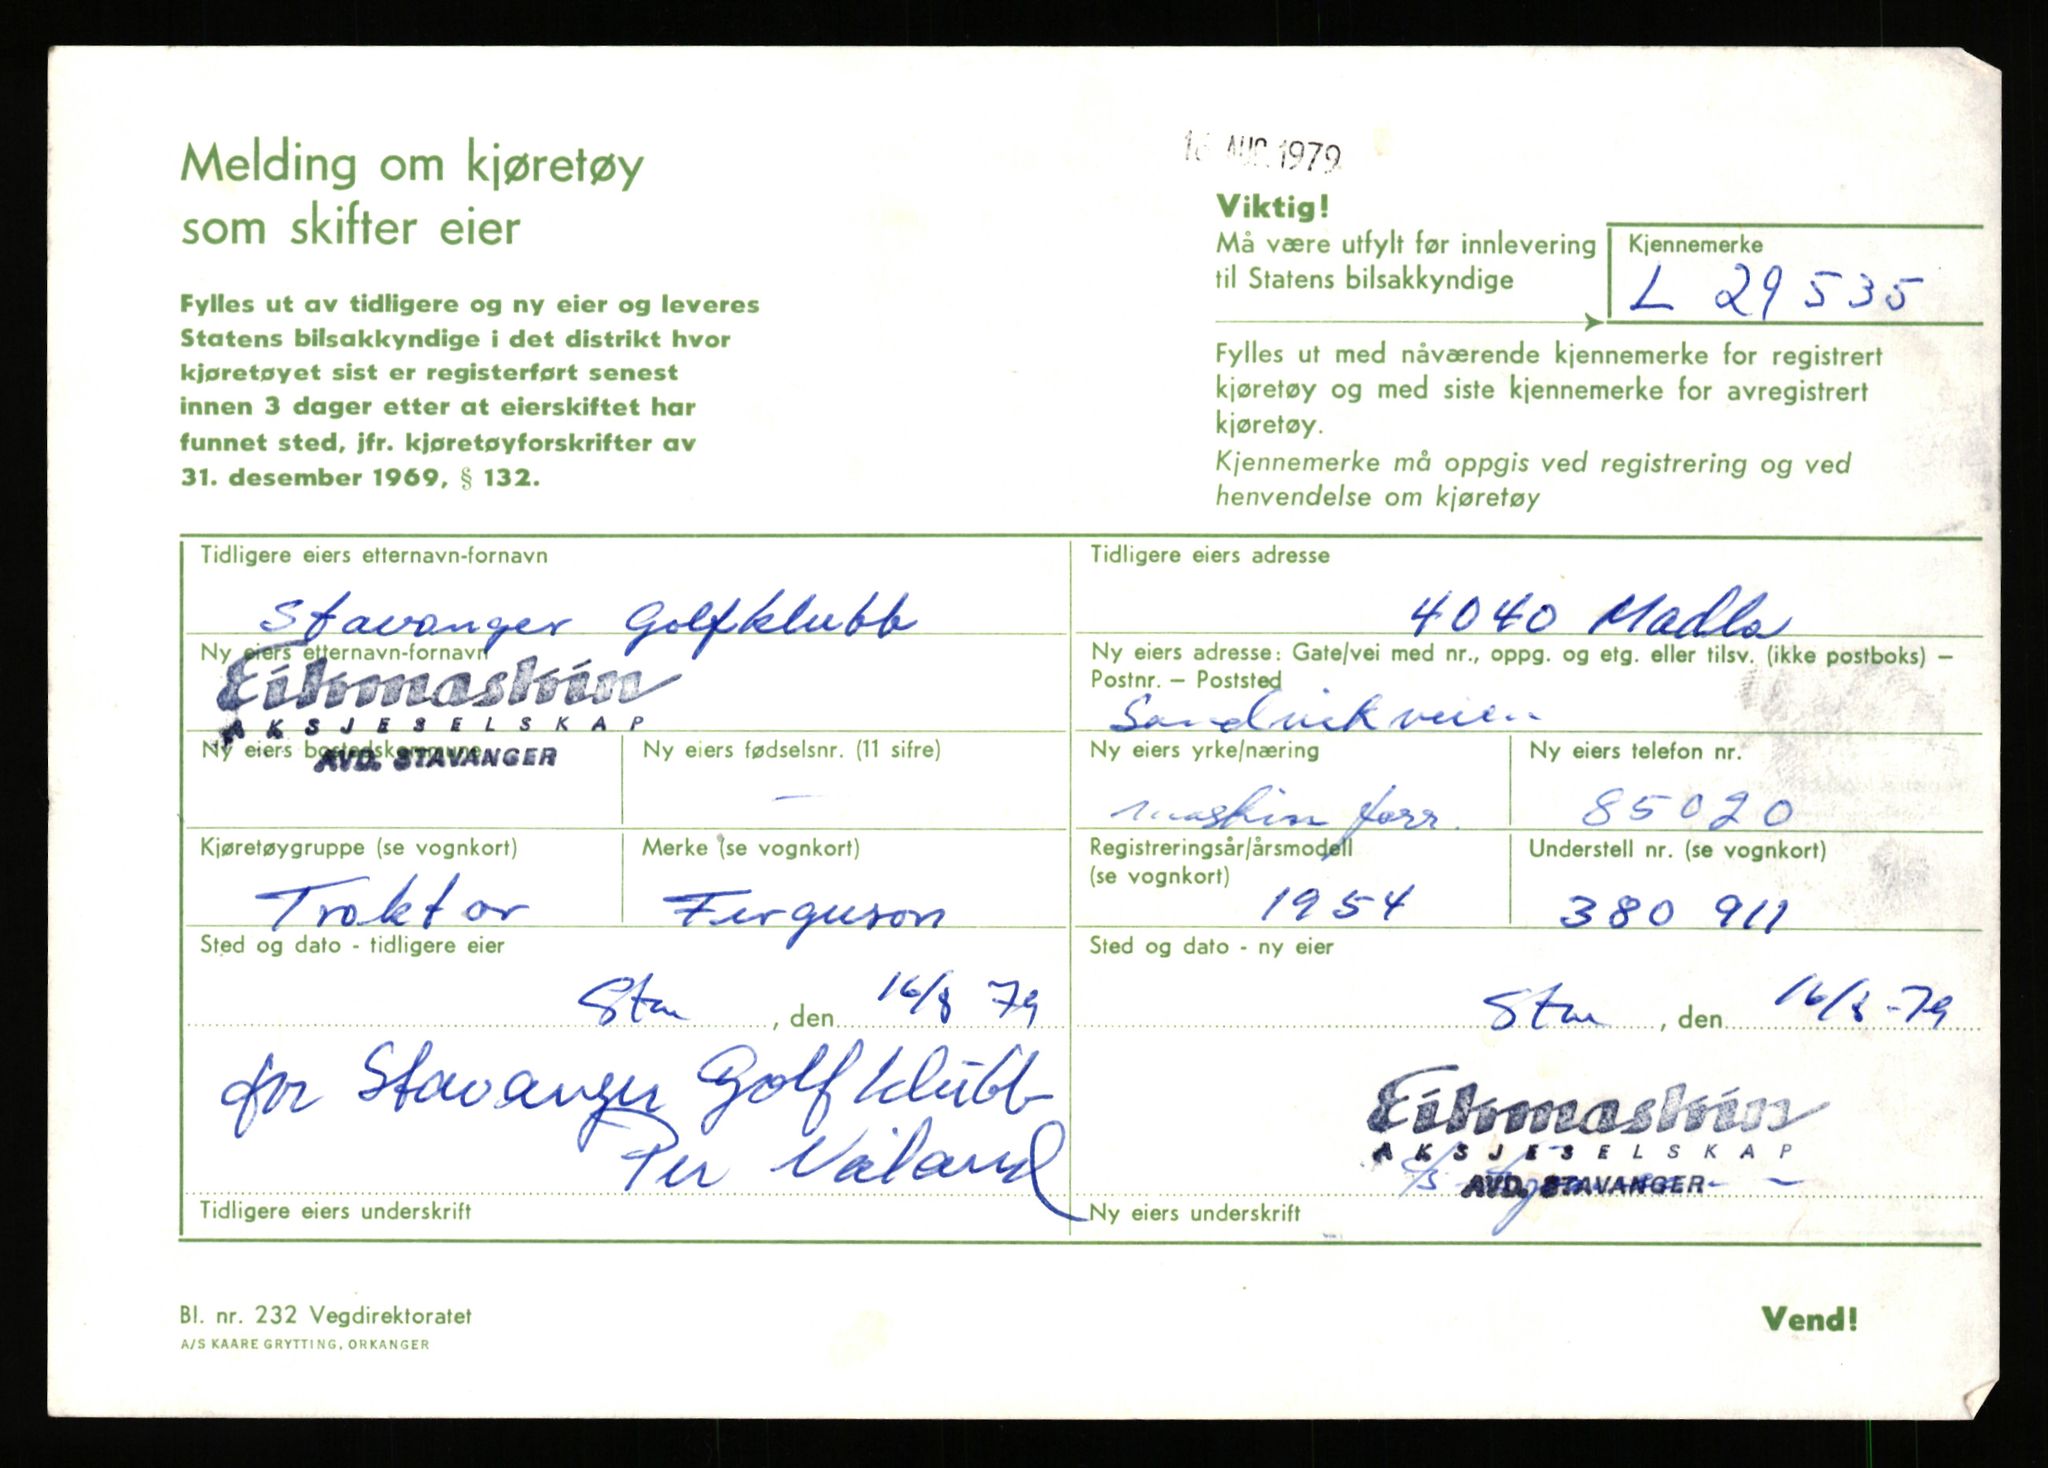 Melding om kjøretøy
som skifter eier
Fylles ut av tidligere og ny eier og leveres
Statens bilsakkyndige i det distrikt hvor
kjøretøyet sist er registerført senest
innen 3 dager etter at eierskiftet har
funnet sted, jfr. kjøretøyforskrifter av
31. desember 1969, § 132.
AUG. 1979
Viktig!
Må være utfylt før innlevering
til Statens bilsakkyndige
Kjennemerke
L 29535
Fylles ut med nåværende kjennemerke for registrert
kjøretøy og med siste kjennemerke for avregistrert
kjøretøy.
Kjennemerke må oppgis ved registrering og ved
henvendelse om kjøretøy
Tidligere eiers etternavn-fornavn
Stavanger Golfklubb
Tidligere eiers adresse
4040 Madla
Ny eiers etternavn-fornavn
Eikmaskin
AKSJESELSKAP
AVD. STAVANGER
Ny eiers adresse: Gate/vei med nr., oppg. og etg. eller tilsv. (ikke postboks) –
Postnr. – Poststed
Sandvikveien
Ny eiers bostedskommune
Ny eiers fødselsnr. (11 sifre)
—
Ny eiers yrke/næring
maskin forr.
Ny eiers telefon nr.
85020
Kjøretøygruppe (se vognkort)
Traktor
Merke (se vognkort)
Ferguson
Registreringsår/årsmodell
(se vognkort)
1954
Understell nr. (se vognkort)
380 911
Sted og dato - tidligere eier
Stv , den 16/8 79
Sted og dato - ny eier
Stv , den 16/8 -79
for Stavanger Golfklubb
Per Våland
Eikmaskin
AKSJESELSKAP
AVD. STAVANGER
Tidligere eiers underskrift
Ny eiers underskrift
Bl. nr. 232 Vegdirektoratet
A/S KAARE GRYTTING, ORKANGER
Vend!